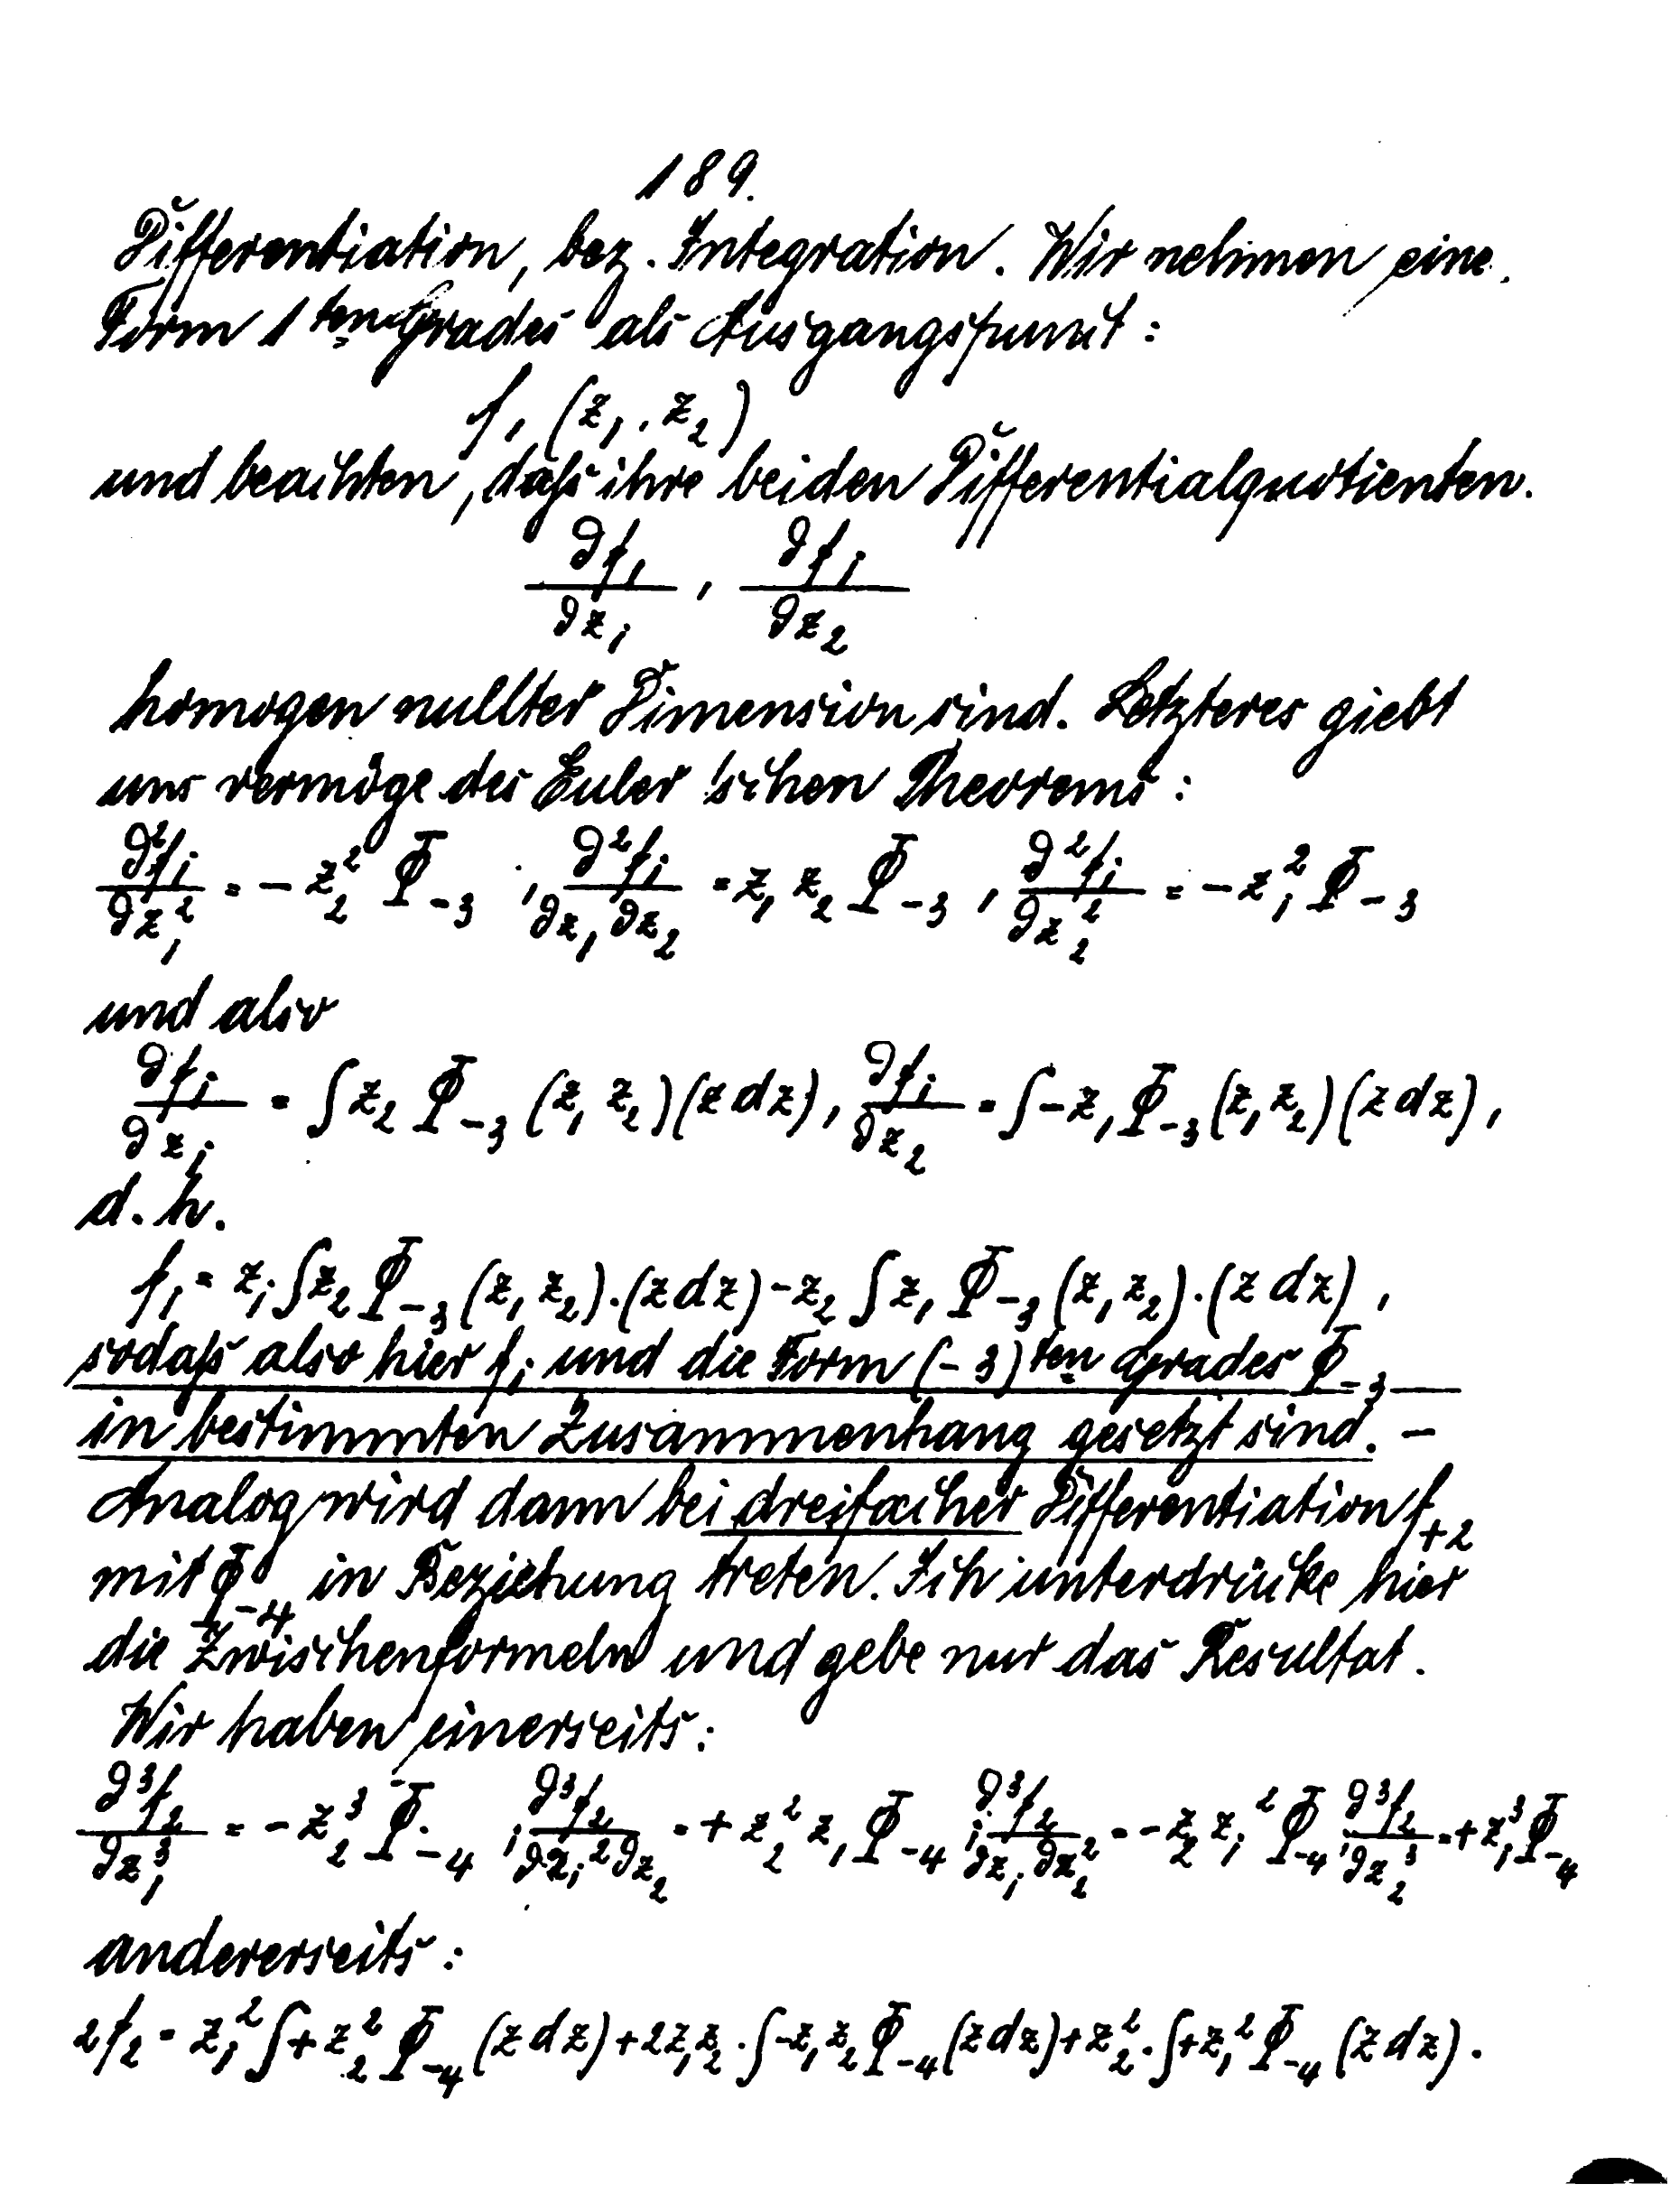 189.
Differentiation, bez. Integration. Wir nehmen eine
Form 1ten Grades als Ausgangspunkt:
f₁ (z₁, z₂)
und beachten, daß ihre beiden Differentialquotienten.
∂f₁/∂z₁ , ∂f₁/∂z₂
homogen nullter Dimension sind. Letzteres giebt
uns vermöge des Euler'schen Theorems:
∂²f₁/∂z₁² = − z₂² Φ₋₃ , ∂²f₁/∂z₁∂z₂ = z₁ z₂ Φ₋₃ , ∂²f₁/∂z₂² = − z₁² Φ₋₃
und also
∂f₁/∂z₁ = ∫ z₂ Φ₋₃ (z₁ z₂)(z dz), ∂f₁/∂z₂ = ∫ − z₁ Φ₋₃ (z₁ z₂)(z dz),
d. h.
f₁ = z₁ ∫ z₂ Φ₋₃ (z₁ z₂).(z dz) − z₂ ∫ z₁ Φ₋₃ (z₁ z₂).(z dz),
sodaß also hier f₁ und die Form (−3)ten Grades Φ₋₃
in bestimmten Zusammenhang gesetzt sind. −
Analog wird dann bei dreifacher Differentiation f₊₂
mit Φ₋₄ in Beziehung treten. Ich unterdrücke hier
die Zwischenformeln und gebe nur das Resultat.
Wir haben einerseits:
∂³f₂/∂z₁³ = − z₂³ Φ₋₄ , ∂³f₂/∂z₁²∂z₂ = + z₂² z₁ Φ₋₄ , ∂³f₂/∂z₁∂z₂² = − z₂ z₁² Φ₋₄ , ∂³f₂/∂z₂³ = + z₁³ Φ₋₄
andererseits:
2f₂ = z₁² ∫ + z₂² Φ₋₄ (z dz) + 2z₁z₂ . ∫ − z₁z₂ Φ₋₄ (z dz) + z₂² . ∫ + z₁² Φ₋₄ (z dz).